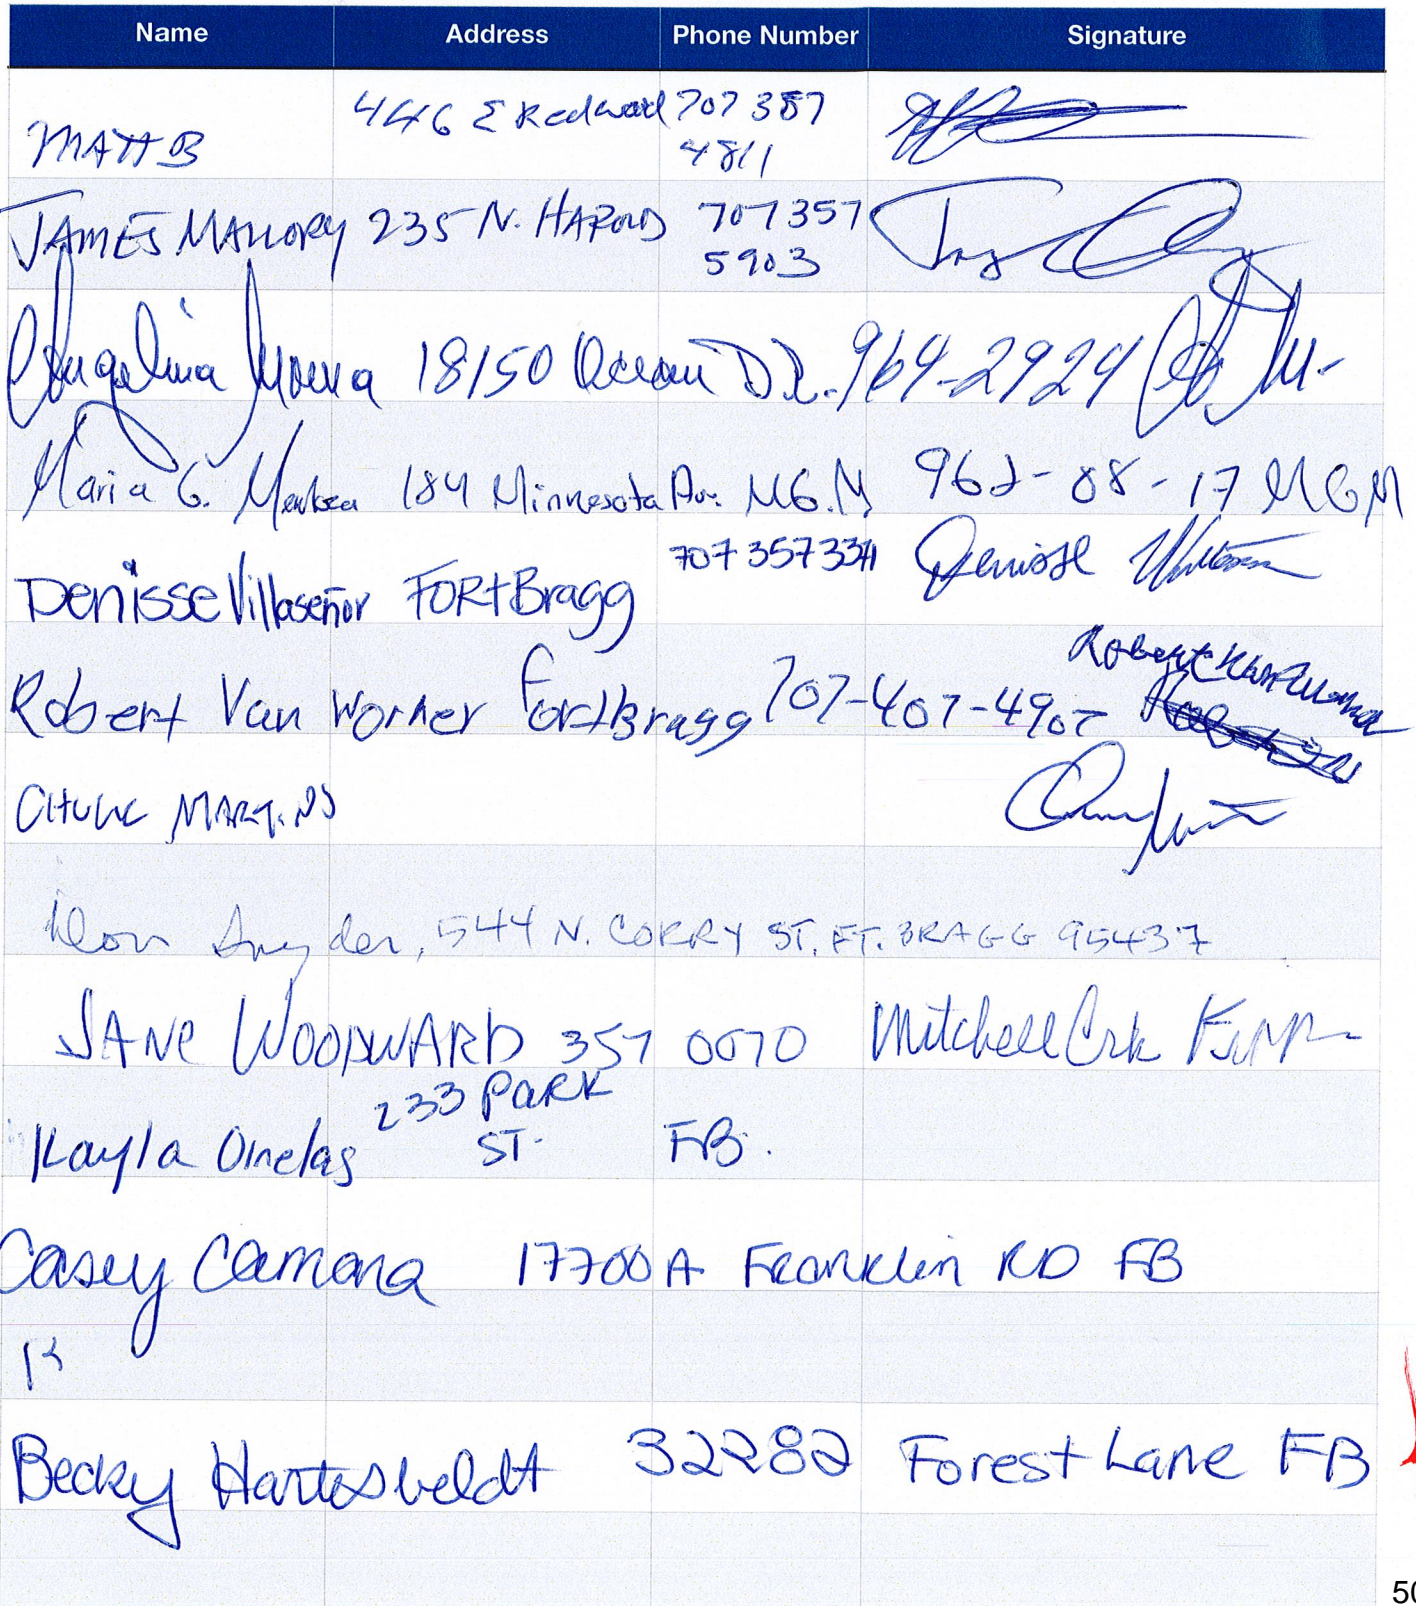 Name Address Phone Number Signature
MATT B 446 E Redwood 707 357
4811
JAMES MALLORY 235 N. HAROLD 707 357
5903
Angelina 18150 Ocean DR. 964-2924 A M.
Maria G. 184 Minnesota Av. M G. M 962-08-17 M G M
Denisse Villaseñor FORt Bragg 707 357 3341 Denisse
Robert Van Wormer Fort Bragg 707-407-4907 Robert
CHUCK MARTINS
Don Snyder, 544 N. CORRY ST. FT. BRAGG 95437
JANE WOODWARD 357 0070 Mitchell Crk
Kayla Ornelas 233 PARK
ST. FB.
Casey Camara 17700 A Franklin RD FB
K
Becky 32282 Forest Lane FB
50